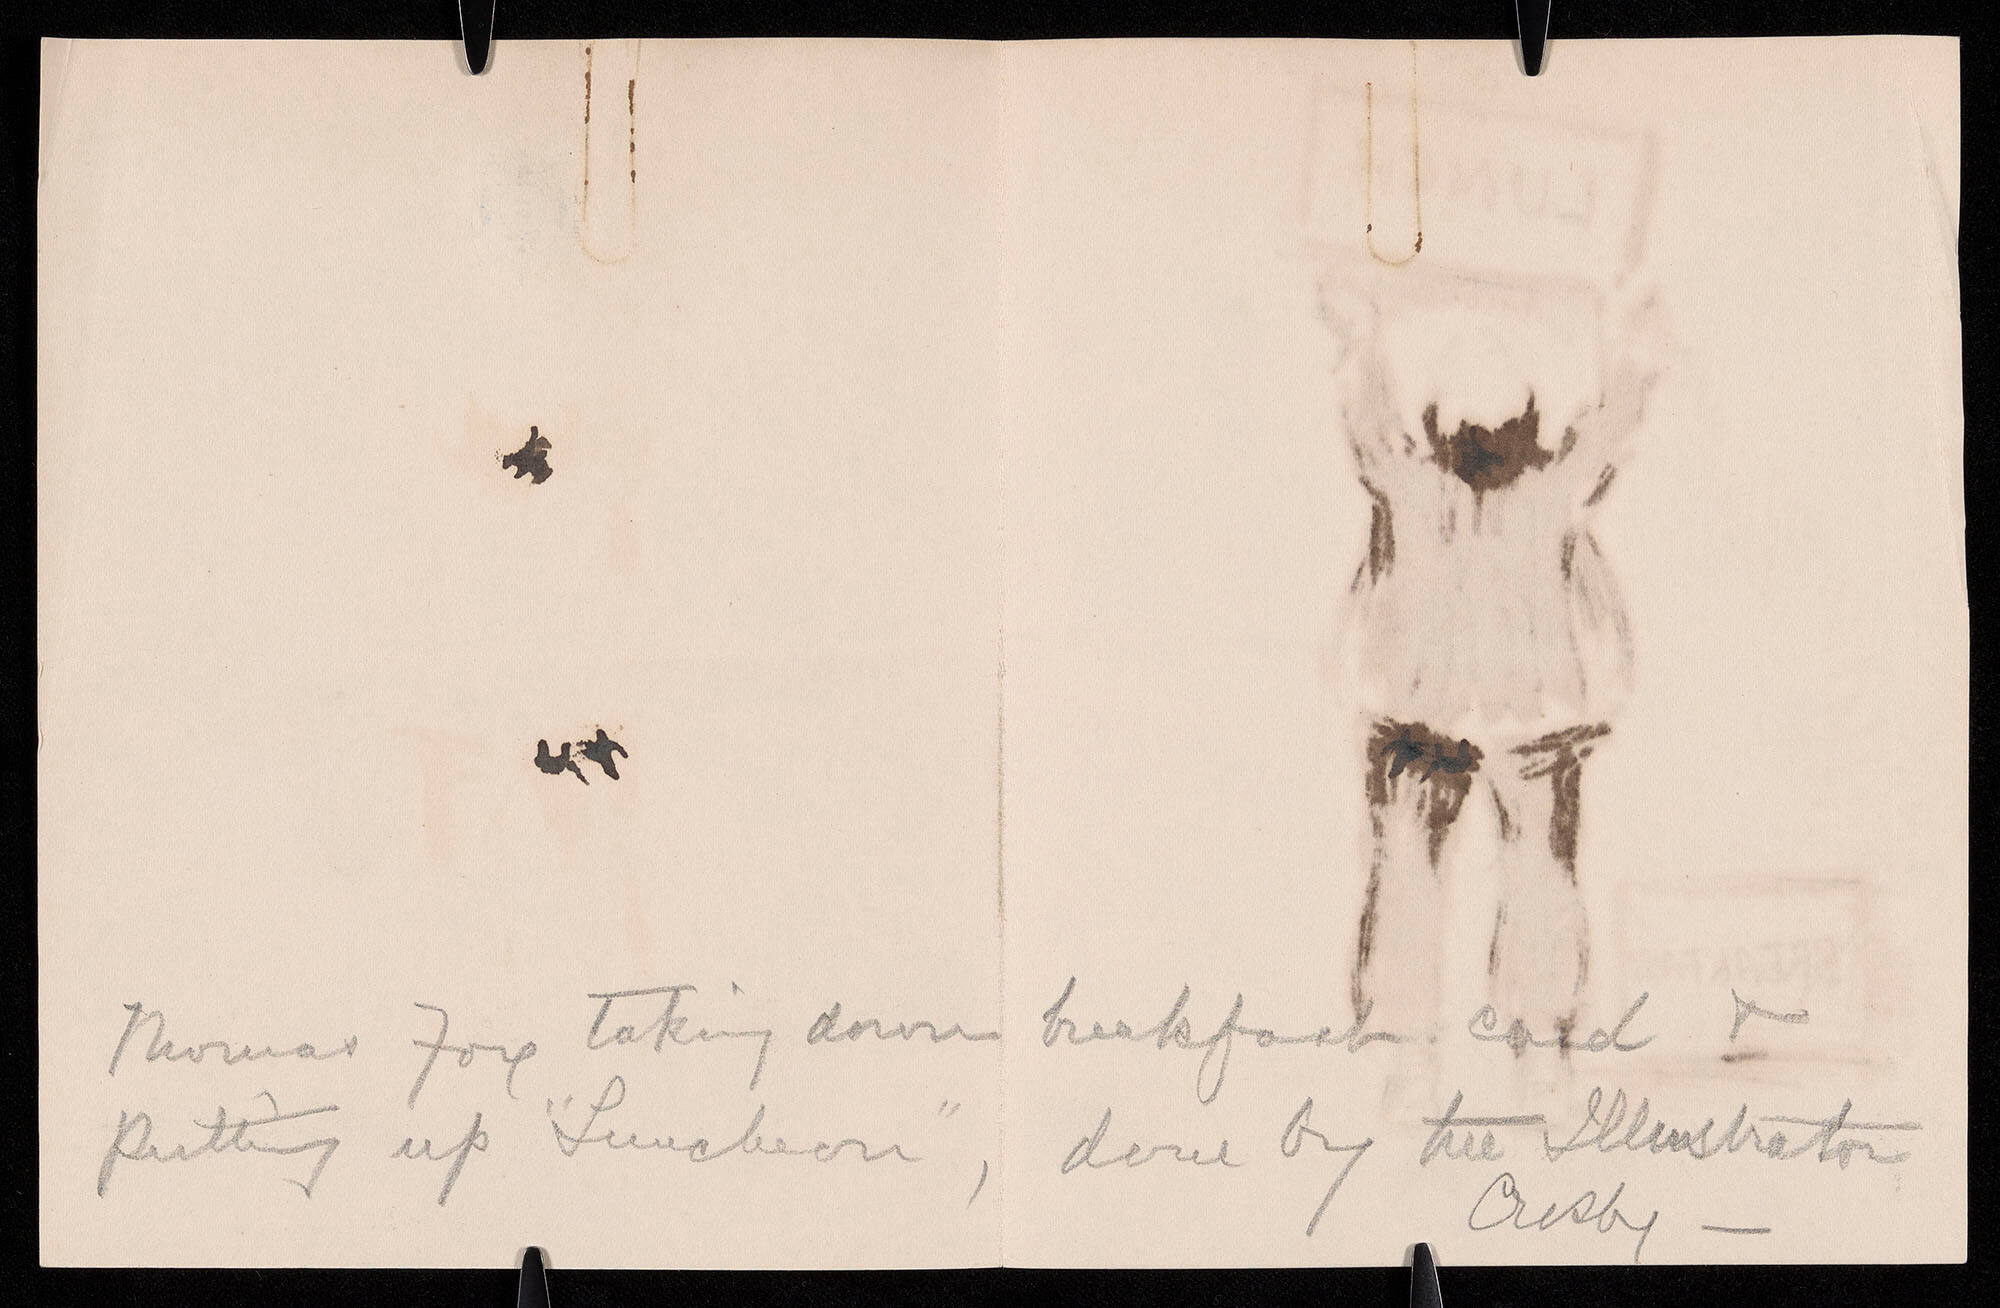 LUNCH
BREAKFAST
Thomas Fox taking down breakfast card &
Putting up "Luncheon", done by the Illustrator
Crosby —